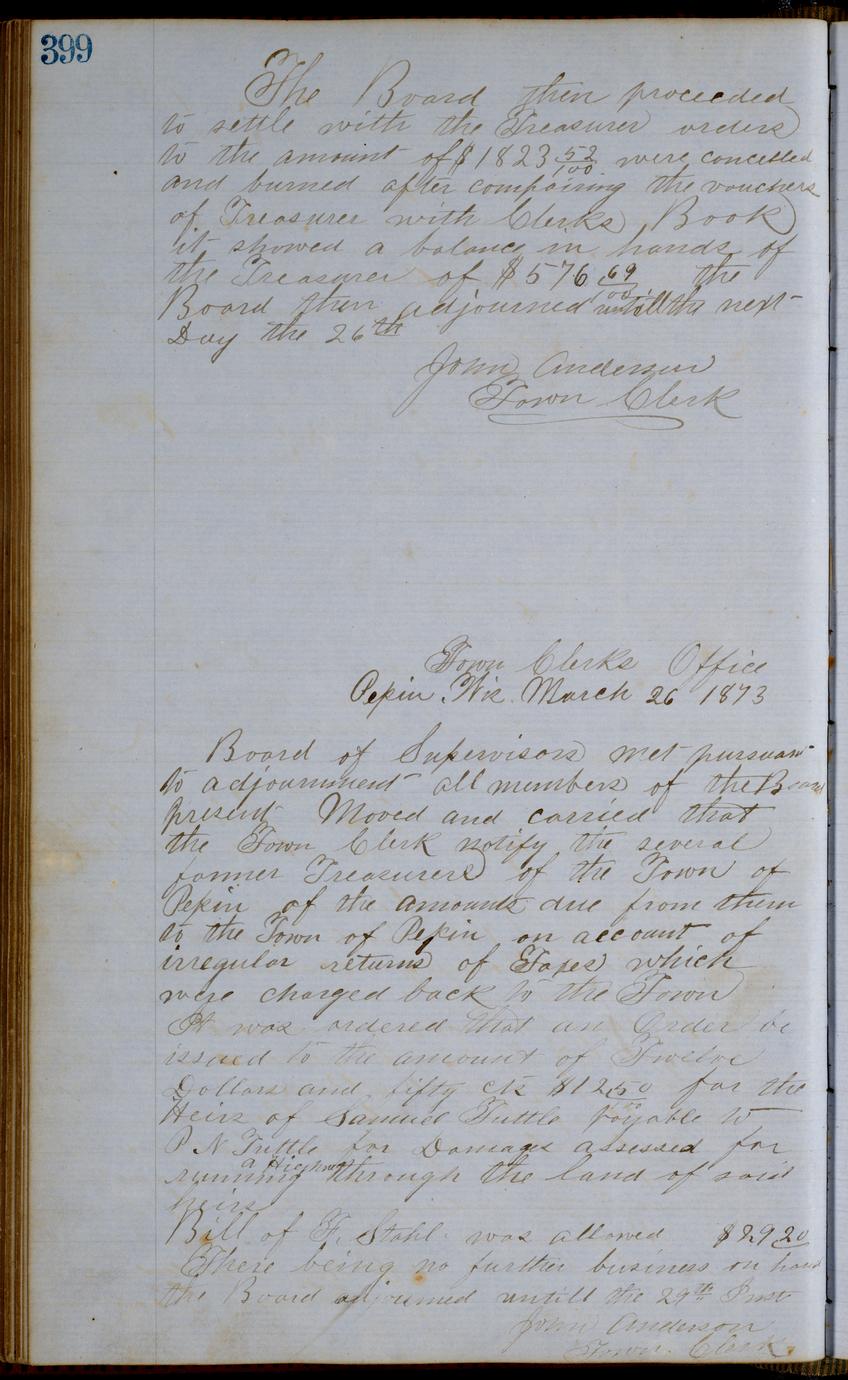 399
The Board then proceeded
to settle with the Treasurer orders
to the amount of $1823 52/100 were concelled
and burned after compairing the vouchers
of Treasurer with Clerks Book
it showed a balance in hands of
the Treasurer of $576 69/100 the
Board then adjourned untill the next
Day the 26th
John Anderson
Town Clerk
Town Clerks Office
Pepin Wis. March 26 1873
Board of Supervisors met pursuant
to adjournment all members of the Board
present Moved and carried that
the Town Clerk notify the several
former Treasurers of the Town of
Pepin of the amounts due from them
to the Town of Pepin on account of
irregular returns of Taxes which
were charged back to the Town
It was ordered that an Order be
issued to the amount of Twelve
Dollars and fifty cts $12 50 for the
Heirs of Samuel Tuttle payable to
P N Tuttle for Damages assessed for
running a Highway through the land of said
heirs
Bill of F. Stahl was allowed $29 20
There being no further business on hand
the Board adjourned untill the 29th Inst
John Anderson
Town Clerk